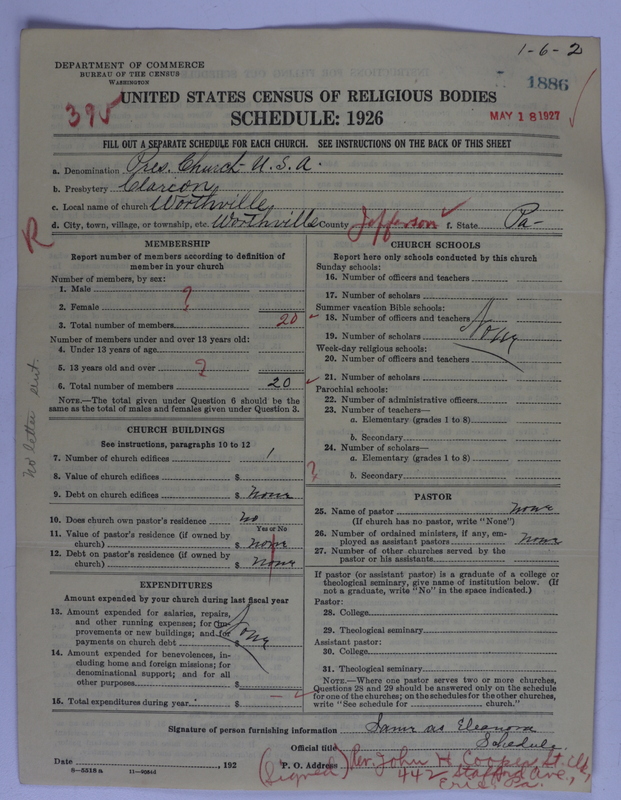 1-6-2
DEPARTMENT OF COMMERCE
BUREAU OF THE CENSUS
WASHINGTON
1886
395
UNITED STATES CENSUS OF RELIGIOUS BODIES
SCHEDULE: 1926
MAY 18 1927
FILL OUT A SEPARATE SCHEDULE FOR EACH CHURCH. SEE INSTRUCTIONS ON THE BACK OF THIS SHEET
a. Denomination Pres. Church U.S.A.
b. Presbytery Clarion
c. Local name of church Worthville
d. City, town, village, or township, etc. Worthville County Jefferson f. State Pa-
R
no letter sent.
MEMBERSHIP
Report number of members according to definition of
member in your church
Number of members, by sex:
1. Male ?
2. Female
3. Total number of members 20
Number of members under and over 13 years old:
4. Under 13 years of age
5. 13 years old and over ?
6. Total number of members 20
NOTE.—The total given under Question 6 should be
same as the total of males and females given under Question 3.
CHURCH BUILDINGS
See instructions, paragraphs 10 to 12
7. Number of church edifices 1
8. Value of church edifices $
9. Debt on church edifices $ none
10. Does church own pastor's residence no
Yes or No
11. Value of pastor's residence (if owned by
church) $ none
12. Debt on pastor's residence (if owned by
church) $ none
EXPENDITURES
Amount expended by your church during last fiscal year
13. Amount expended for salaries, repairs,
and other running expenses; for im-
provements or new buildings; and for
payments on church debt $ None
14. Amount expended for benevolences, in-
cluding home and foreign missions; for
denominational support; and for all
other purposes $
15. Total expenditures during year $ —
CHURCH SCHOOLS
Report here only schools conducted by this church
Sunday schools:
16. Number of officers and teachers
17. Number of scholars
Summer vacation Bible schools:
18. Number of officers and teachers
19. Number of scholars None
Week-day religious schools:
20. Number of officers and teachers
21. Number of scholars
Parochial schools:
22. Number of administrative officers
23. Number of teachers—
a. Elementary (grades 1 to 8)
b. Secondary
24. Number of scholars—
a. Elementary (grades 1 to 8)
?
b. Secondary
PASTOR
25. Name of pastor none
(If church has no pastor, write "None")
26. Number of ordained ministers, if any, em-
ployed as assistant pastors none
27. Number of other churches served by the
pastor or his assistants
If pastor (or assistant pastor) is a graduate of a college or
theological seminary, give name of institution below. (If
not a graduate, write "No" in the space indicated.)
Pastor:
28. College
29. Theological seminary
Assistant pastor:
30. College
31. Theological seminary
NOTE.—Where one pastor serves two or more churches,
Questions 28 and 29 should be answered only on the schedule
for one of the churches; on the schedules for the other churches,
write "See schedule for church."
Signature of person furnishing information Same as Eleanora
Official title Schedule
Date , 192 P. O. Address
(Signed) Rev. John H. Cooper, St. Clk,
442 Stafford Ave.,
Erie, Pa.
8-5518 a